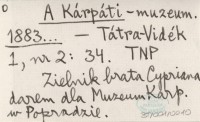 A Kárpáti-muzeum.
1883... — Tátra-Vidék
1, nr 2: 34. TNP
Zielnik brata Cypriana
darem dla Muzeum Karp.
w Popradzie.